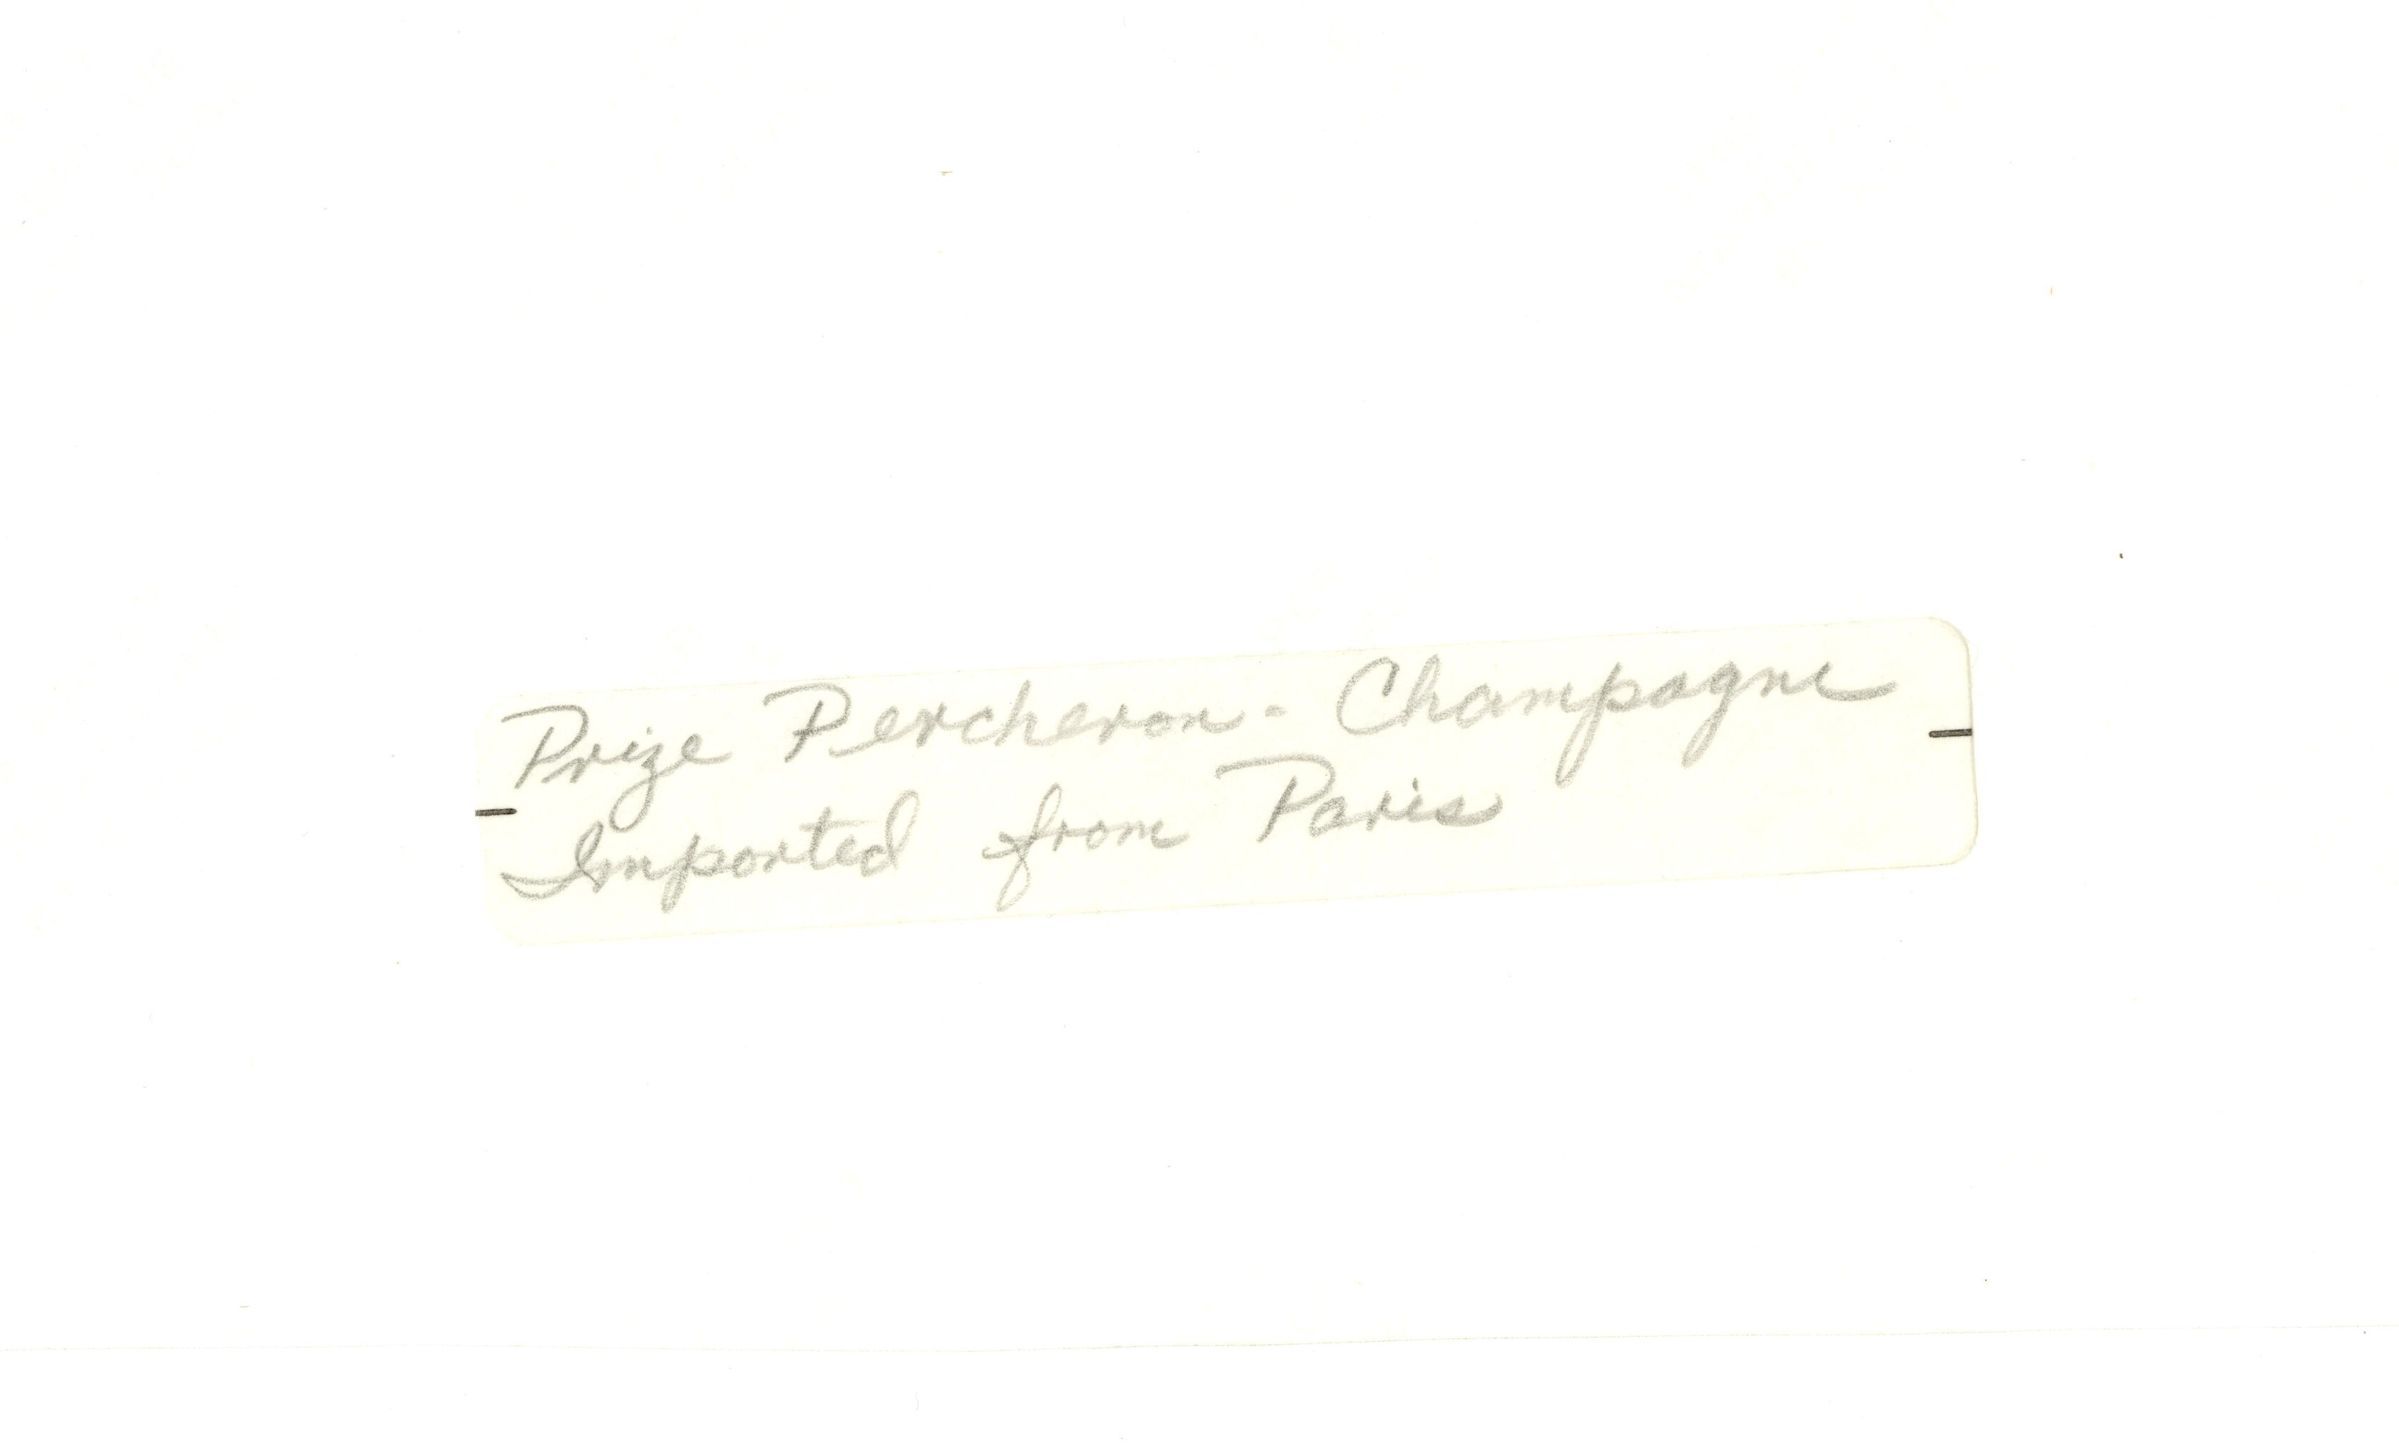 Prize Percheron - Champagne
Imported from Paris